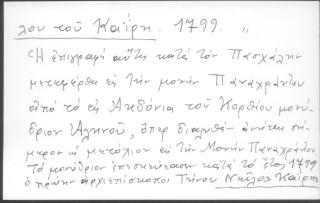 λον τοῦ Καΐρη. 1799. „
Ἡ ἐπιγραφή αὕτη κατά τόν Πασχάλην
μετεφέρθη εἰς τήν μονήν Παναχράντου
ἀπό τό εἰς Ἀηδόνια τοῦ Κορθίου μονύ-
δριον ὅπερ διαλυθέν ἀνήκει σή-
μερον ὡς μετόχιον εἰς τήν Μονήν Παναχράντου.
Τό μονύδριον ἐπεσκεύασεν κατά τό ἔτος 1799
ὁ πρώην ἀρχιεπίσκοπος Τήνου Νεόφυτος Καΐρης